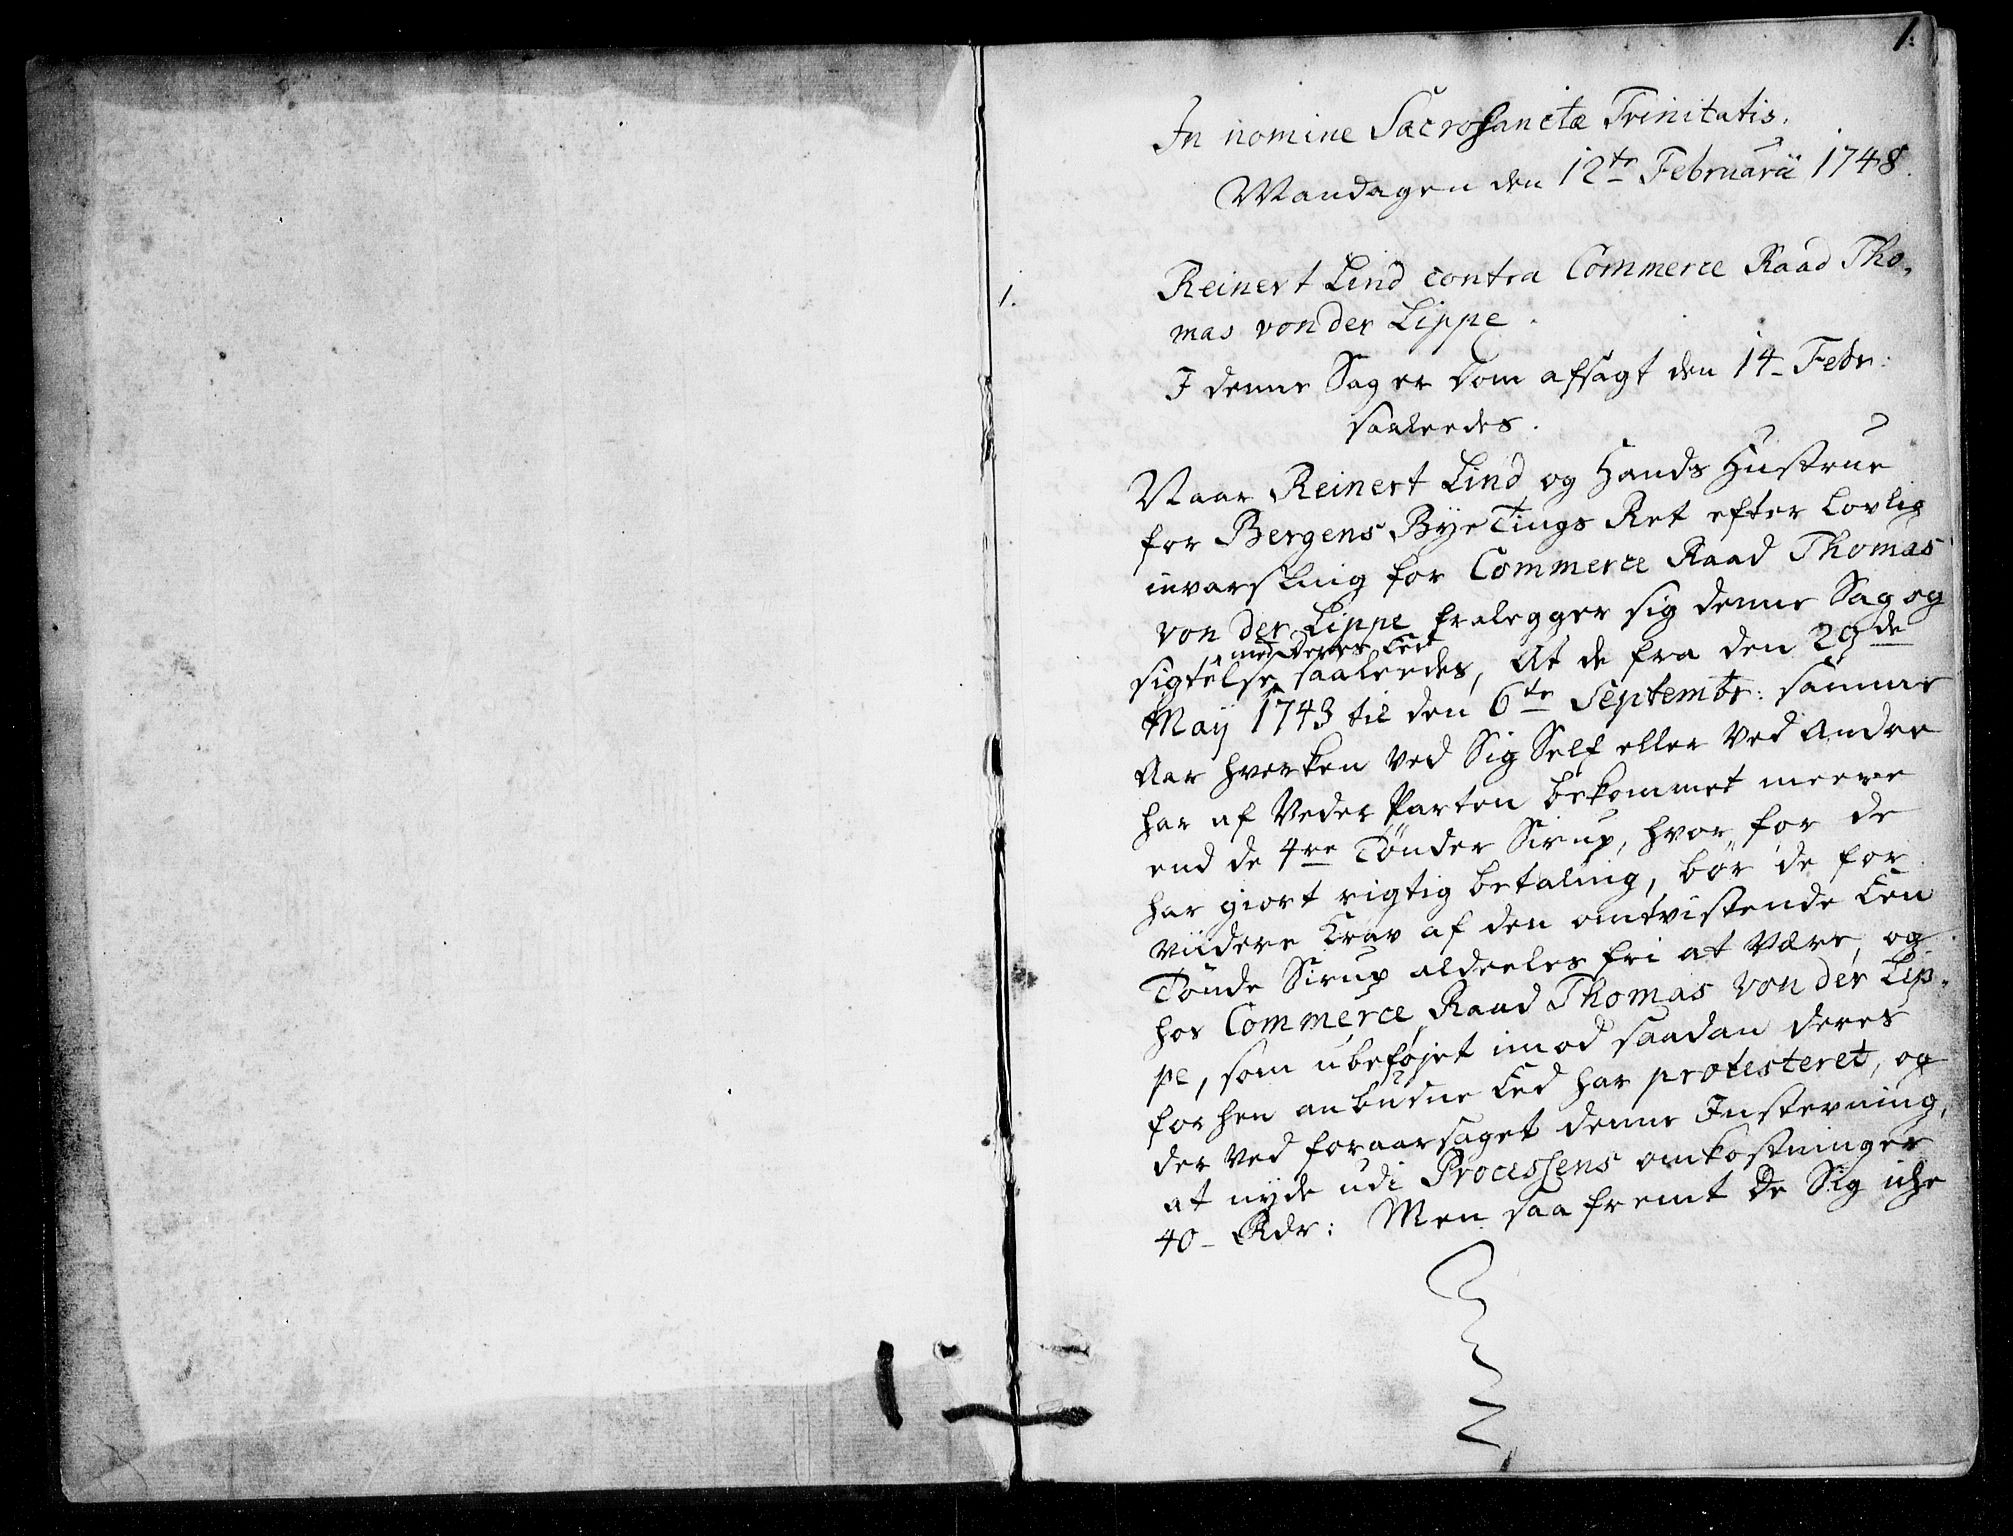 1.
In nomine Sacrosanctæ Trinitatis.
Mandagen den 12te Februarii 1748.
1.
Reinert Lind contra Commerce Raad Tho,
mas von der Lippe.
I denne Sag er Dom afsagt den 14 Febr:
saaleedes.
Naar Reinert Lind og Hands Hustrue
for Bergens Bye Tings Ret efter lovlig
invarsling for Commerce Raad Thomas
von der Lippe fralegger sig denne Sag og
med Deres Eed
sigtelse saaleedes, At de fra den 29de
Maij 1743 til den 6te Septembr: samme
Aar hverken ved Sig Self eller ved Andre
har af Veder Parten bekommet meere
end de 4re Tønder Sirup, hvor for de
har giort rigtig betaling, bør de for
viidere Krav af den omtvistende Een
Tønde Sirup aldeeles fri at være, og
hos Commerce Raad Thomas von der Lip,
pe, som ubeføjet imod saadan deres
forhen anbudne Eed har protesteret, og
der ved foraarsaget denne Instevning,
at nyde udi Processens omkostninger
40 Rdr: Men saa fremt De Sig iche